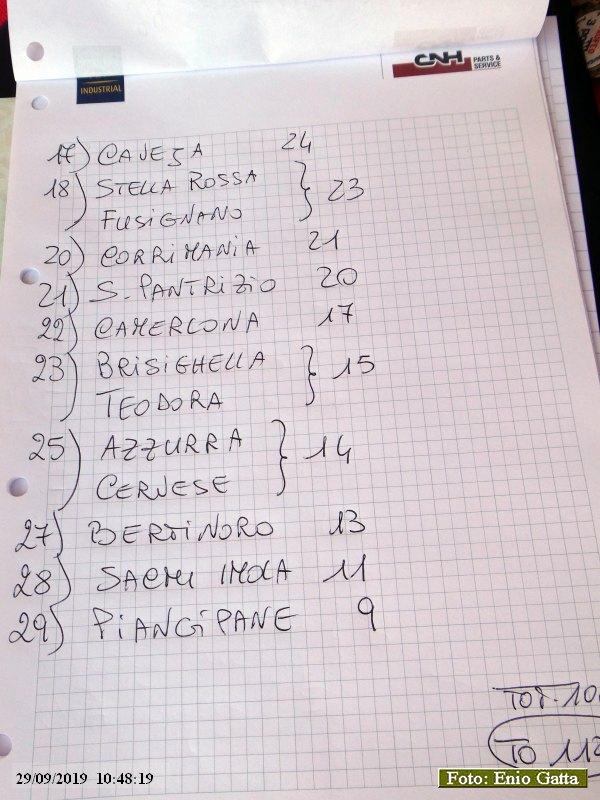 INDUSTRIAL
CNH PARTS & SERVICE
17) CAVEJA 24
18) STELLA ROSSA
FUSIGNANO } 23
20) CORRIMANIA 21
21) S. PANTRIZIO 20
22) CAMERLONA 17
23) BRISIGHELLA
TEODORA } 15
25) AZZURRA
CERVESE } 14
27) BERTINORO 13
28) SACMI IMOLA 11
29) PIANGIPANE 9
TOT. 10
TO 112
29/09/2019 10:48:19
Foto: Enio Gatta